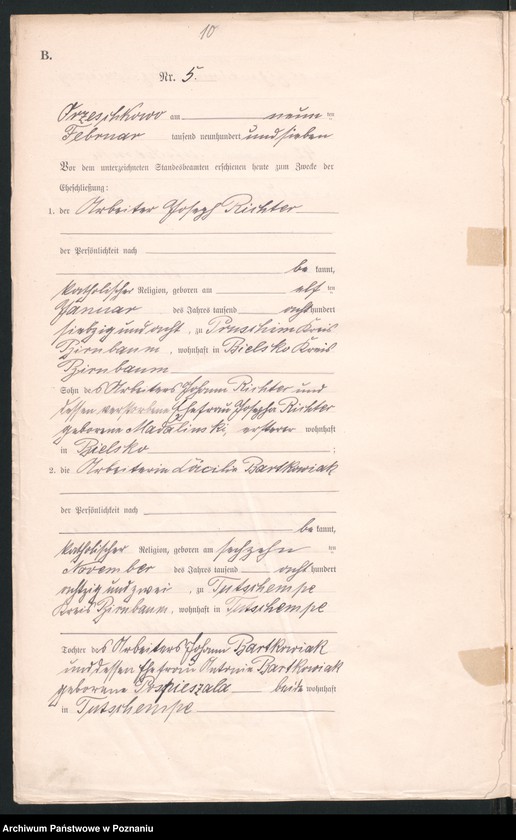 10
B.
Nr. 5.
Orzeschkowo am neun ten
Februar tausend neunhundert und sieben
Vor dem unterzeichneten Standesbeamten erschienen heute zum Zwecke der
Eheschließung:
1. der Arbeiter Joseph Richter
der Persönlichkeit nach
be kannt,
katholischer Religion, geboren am elf ten
Januar des Jahres tausend acht hundert
siebzig und acht, zu Pruschim Kreis
Birnbaum, wohnhaft in Bielsko Kreis
Birnbaum
Sohn des Arbeiters Johann Richter und
dessen verstorbene Ehefrau Josepha Richter
geborene Madalinski, ersterer wohnhaft
in Bielsko ;
2. die Arbeiterin Cäcilie Bartkowiak
der Persönlichkeit nach
be kannt,
katholischer Religion, geboren am sechzehn ten
November des Jahres tausend acht hundert
achtzig und zwei, zu Tutschempe
Kreis Birnbaum, wohnhaft in Tutschempe
Tochter des Arbeiters Johann Bartkowiak
und dessen Ehefrau Antonie Bartkowiak
geborene Pospieszala beide wohnhaft
in Tutschempe
Archiwum Państwowe w Poznaniu